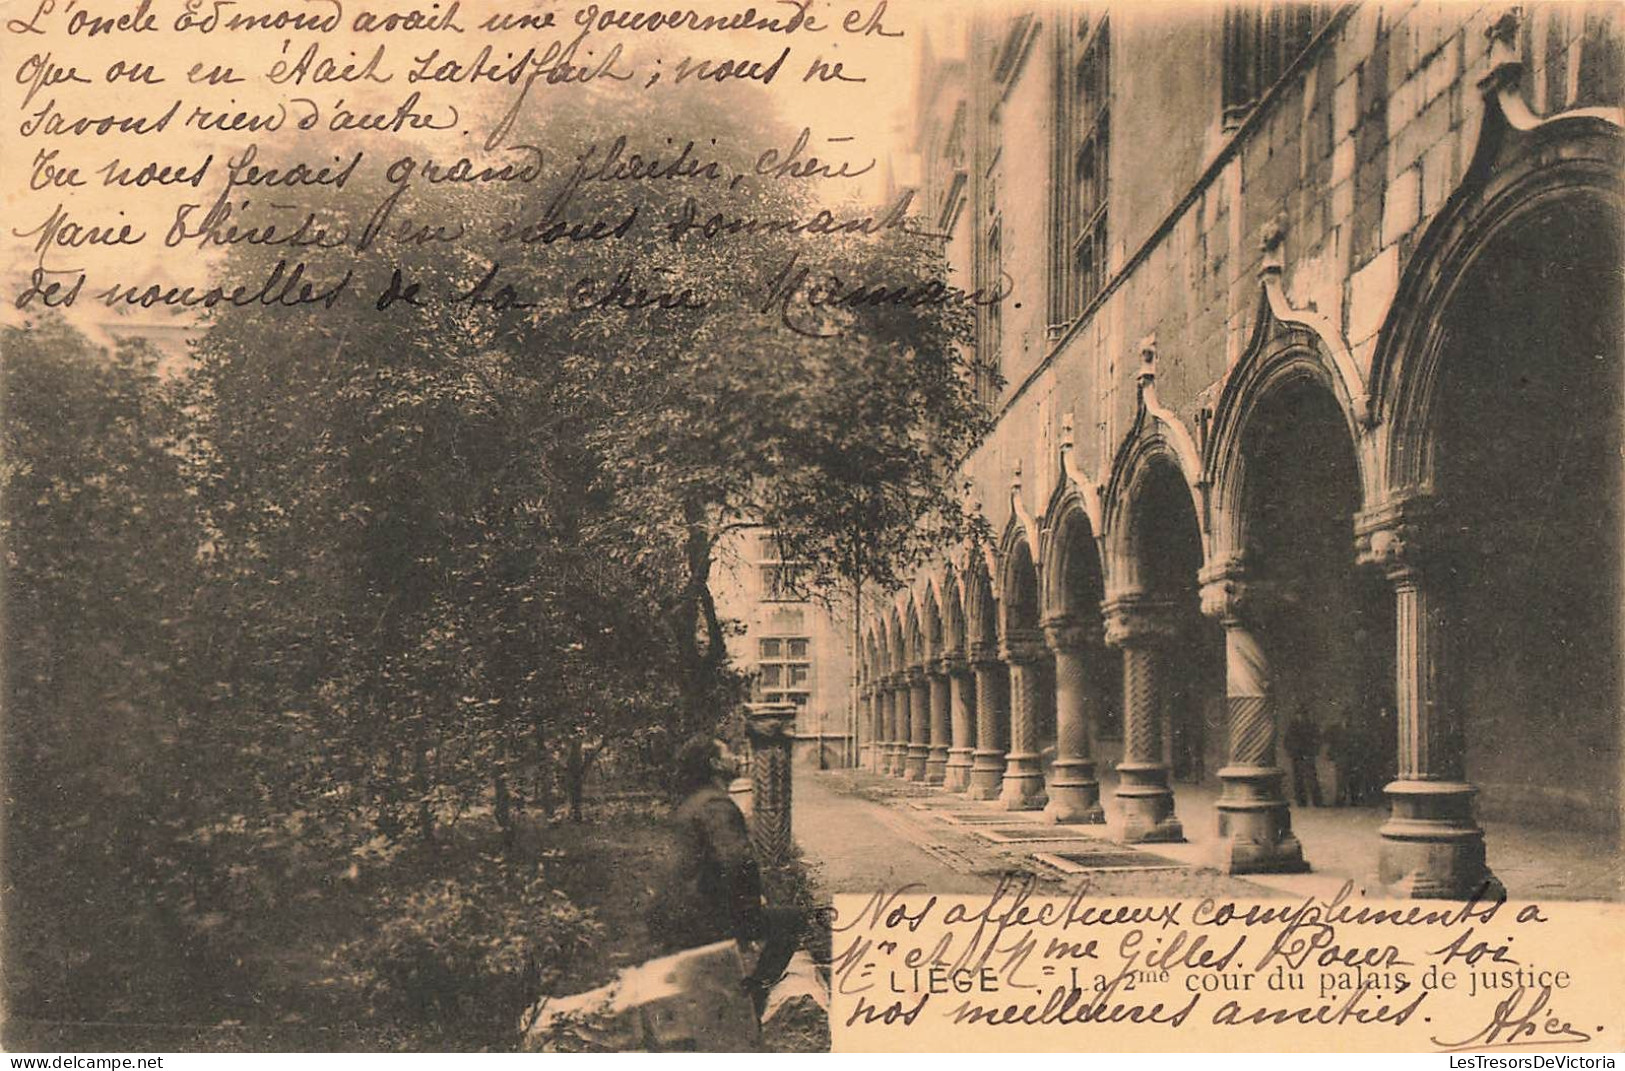 L'oncle Edmond avait une gouvernende et
que on en était satisfait ; nous ne
savons rien d'autre.
Tu nous ferais grand plaisir, chère
Marie Thérèse en nous donnant
des nouvelles de ta chère Maman.
Nos affectueux compliments a
Mr et Mme Gilles. Pour toi
LIÈGE - La 2me cour du palais de justice
nos meilleures amitiés. Alice.
www.LesTresorsDeVictoria